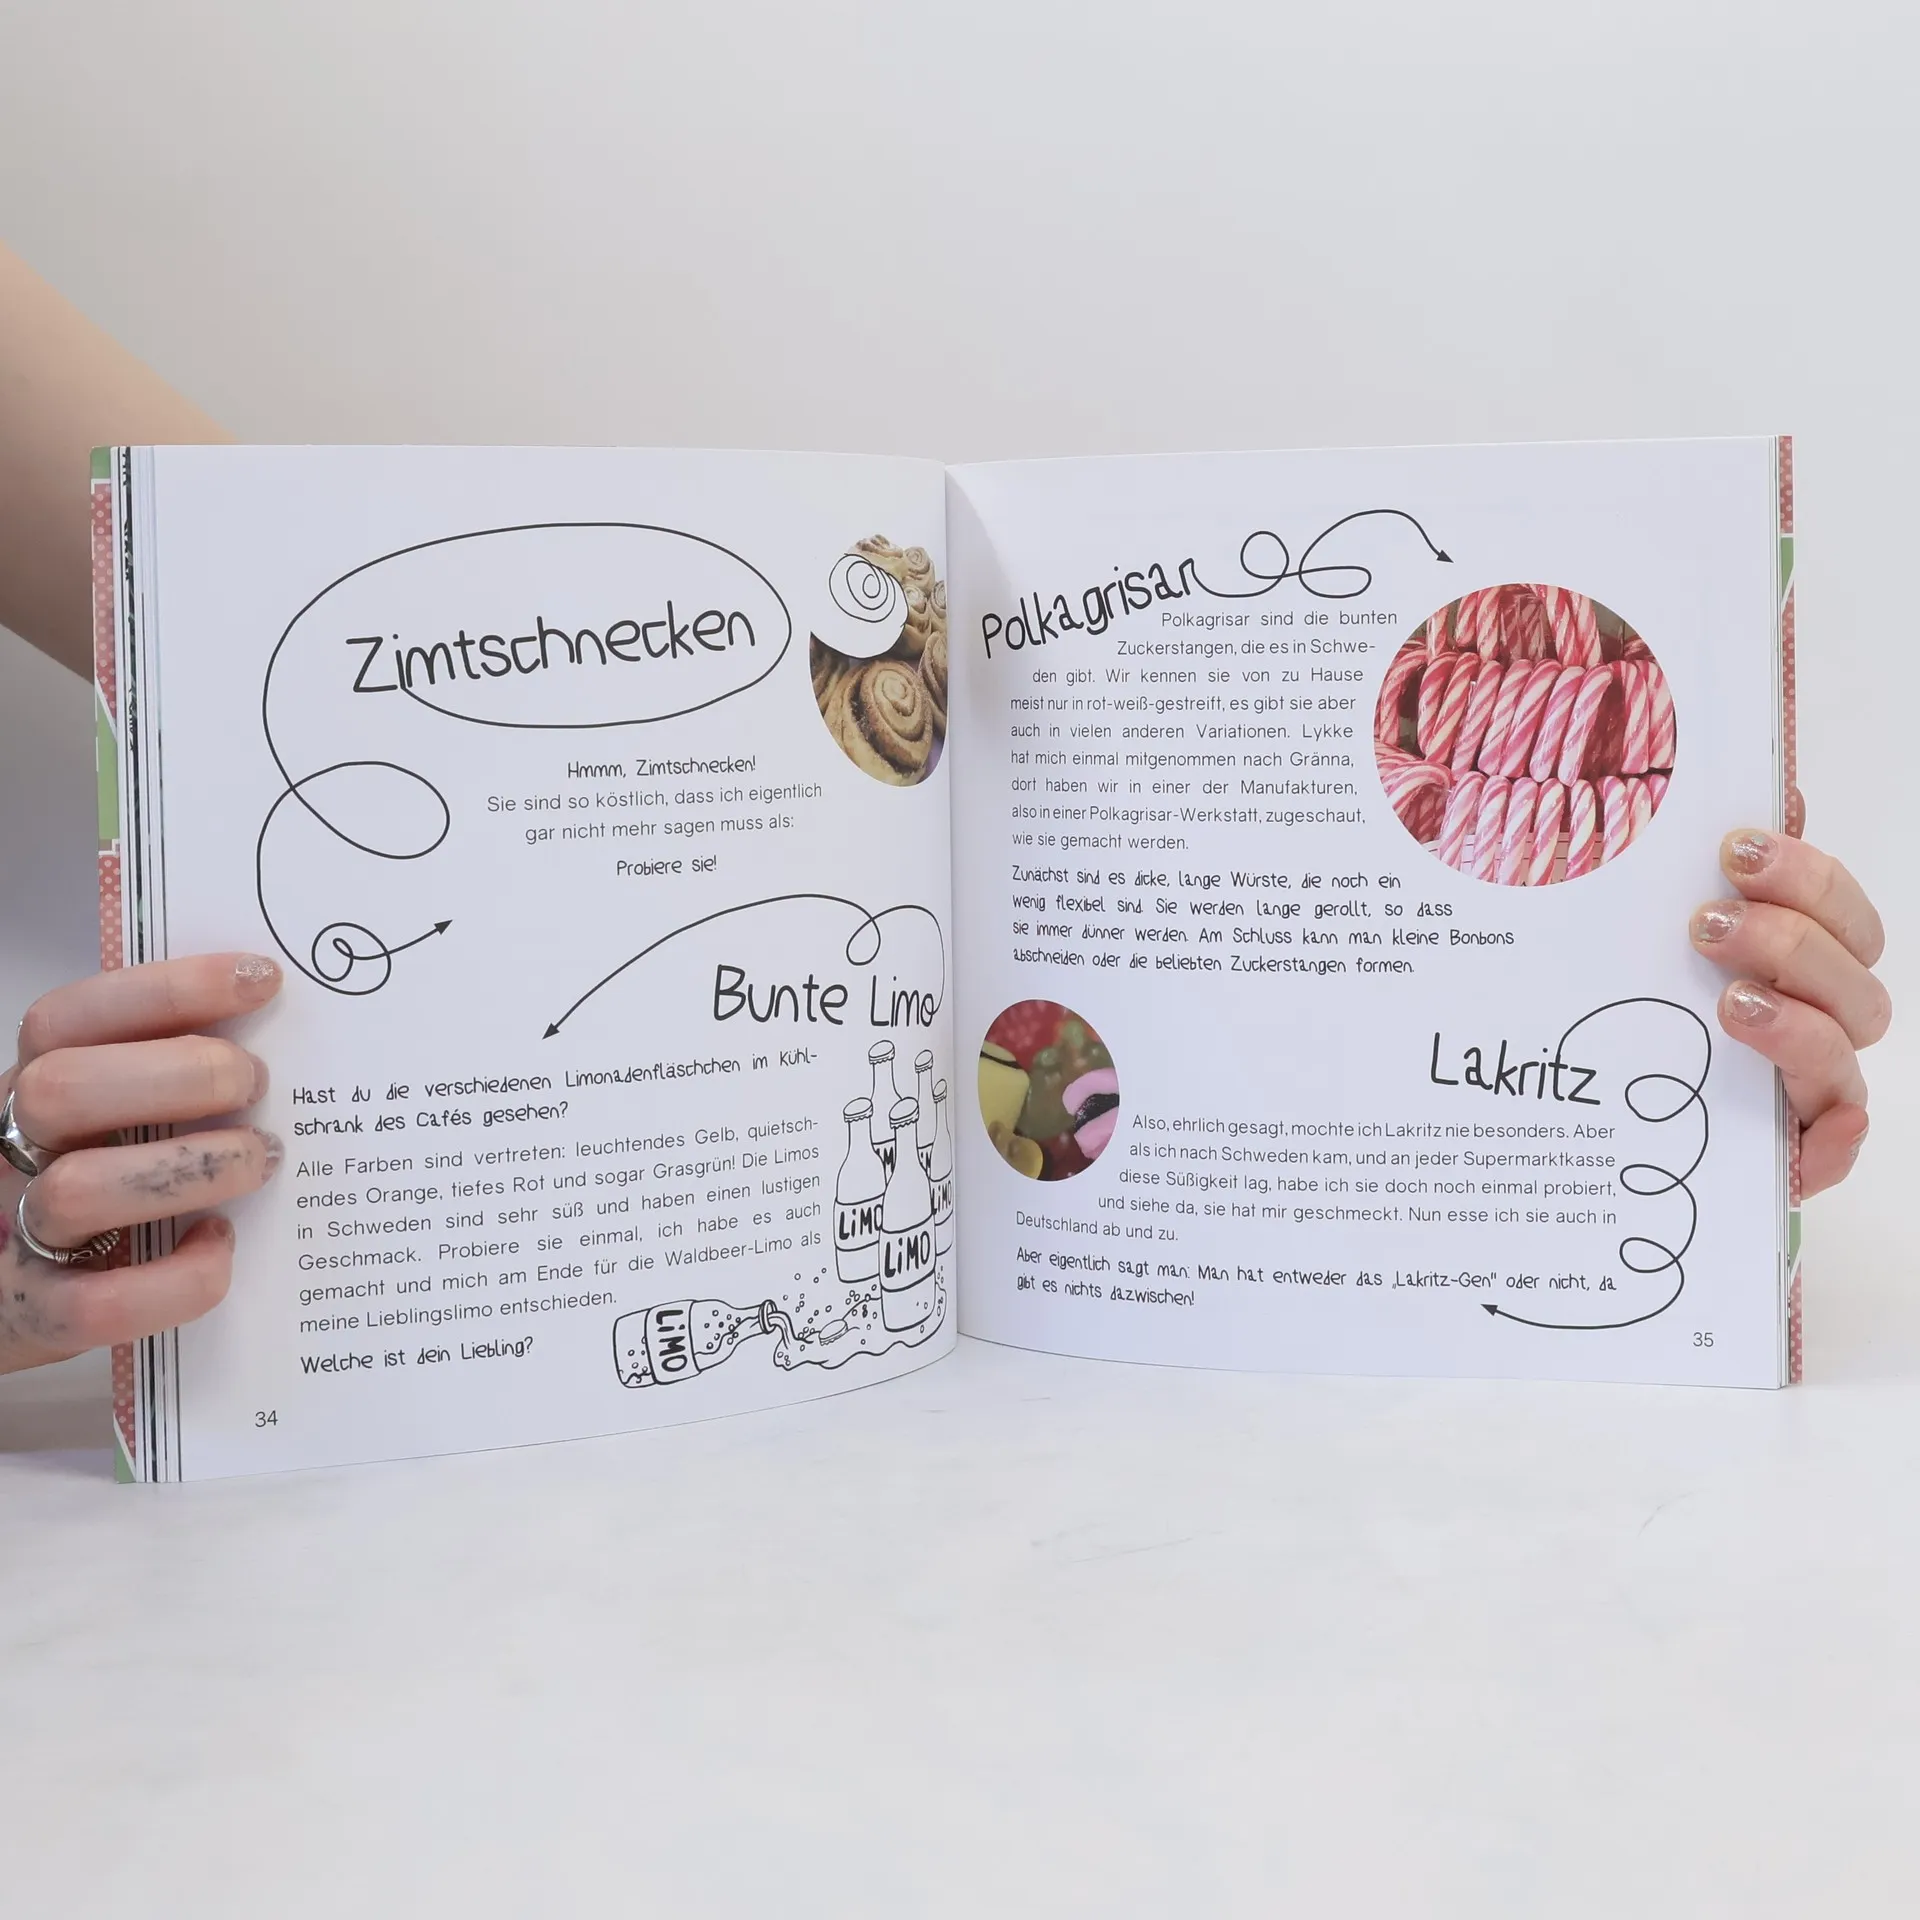 Zimtschnecken
Hmmm, Zimtschnecken!
Sie sind so köstlich, dass ich eigentlich
gar nicht mehr sagen muss als:
Probiere sie!
Bunte Limo
Hast du die verschiedenen Limonadenfläschchen im Kühl-
schrank des Cafés gesehen?
Alle Farben sind vertreten: leuchtendes Gelb, quietsch-
endes Orange, tiefes Rot und sogar Grasgrün! Die Limos
in Schweden sind sehr süß und haben einen lustigen
Geschmack. Probiere sie einmal, ich habe es auch
gemacht und mich am Ende für die Waldbeer-Limo als
meine Lieblingslimo entschieden.
Welche ist dein Liebling?
LiMO
LiMO
LiMO
LiMO
34
Polkagrisar
Polkagrisar sind die bunten
Zuckerstangen, die es in Schwe-
den gibt. Wir kennen sie von zu Hause
meist nur in rot-weiß-gestreift, es gibt sie aber
auch in vielen anderen Variationen. Lykke
hat mich einmal mitgenommen nach Gränna,
dort haben wir in einer der Manufakturen,
also in einer Polkagrisar-Werkstatt, zugeschaut,
wie sie gemacht werden.
Zunächst sind es dicke, lange Würste, die noch ein
wenig flexibel sind. Sie werden lange gerollt, so dass
sie immer dünner werden. Am Schluss kann man kleine Bonbons
abschneiden oder die beliebten Zuckerstangen formen.
Lakritz
Also, ehrlich gesagt, mochte ich Lakritz nie besonders. Aber
als ich nach Schweden kam, und an jeder Supermarktkasse
diese Süßigkeit lag, habe ich sie doch noch einmal probiert,
und siehe da, sie hat mir geschmeckt. Nun esse ich sie auch in
Deutschland ab und zu.
Aber eigentlich sagt man: Man hat entweder das „Lakritz-Gen" oder nicht, da
gibt es nichts dazwischen!
35